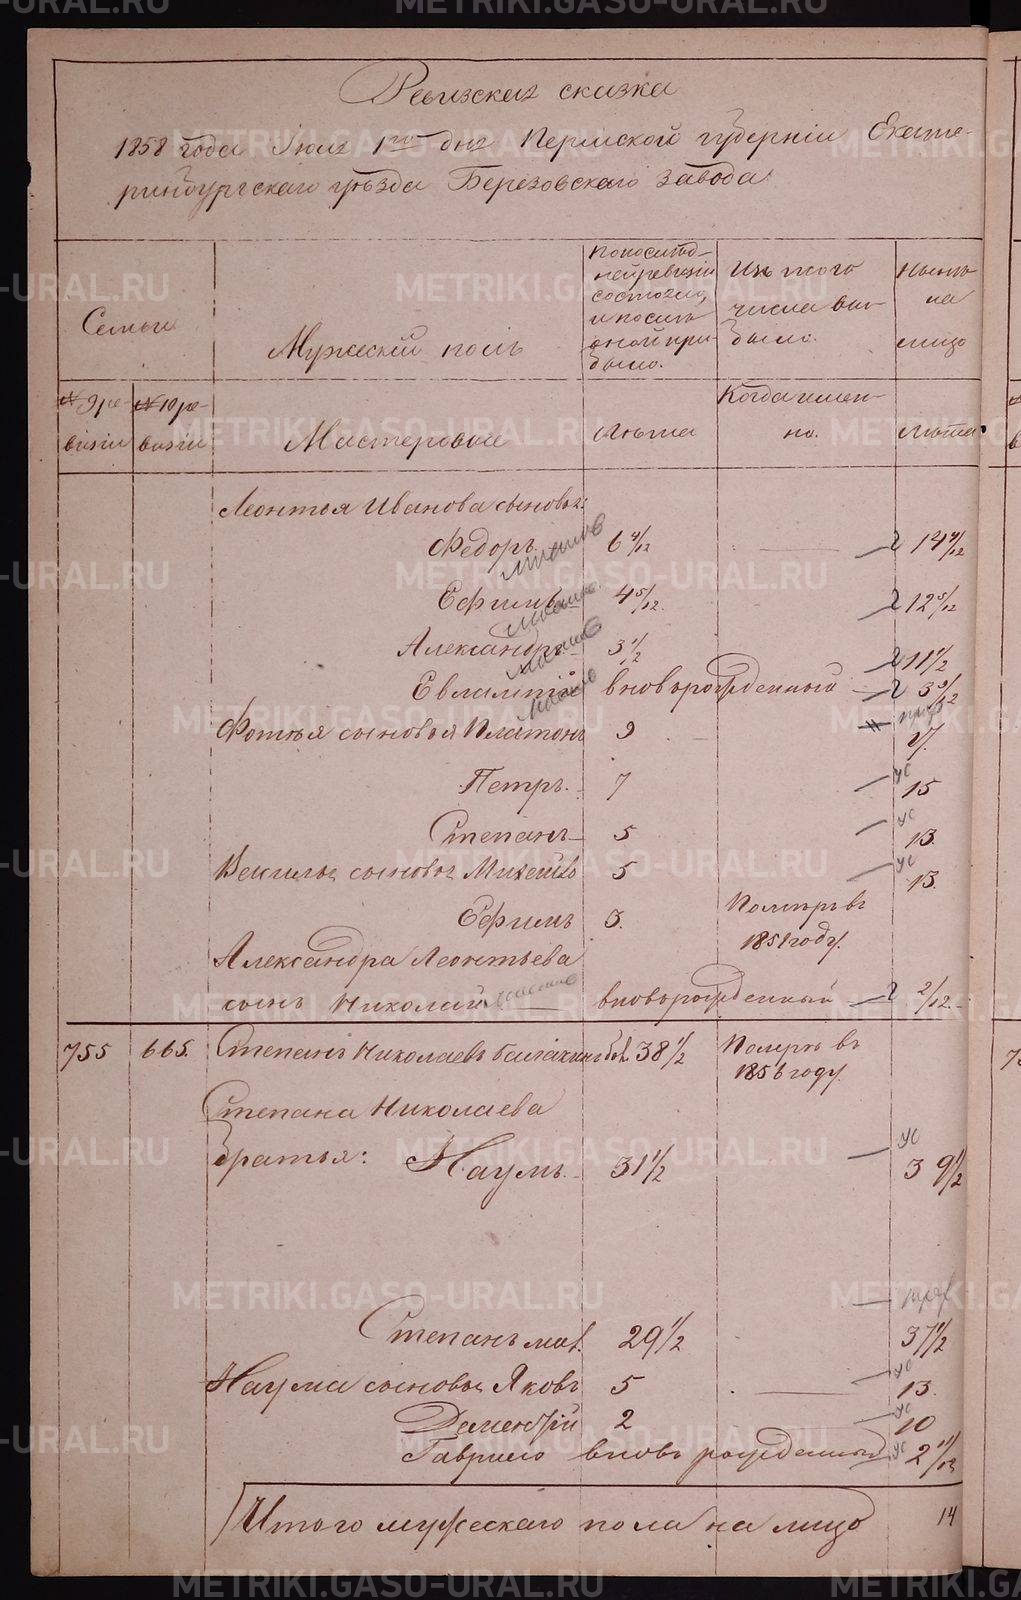 Ревизская сказка
1858 года Июля 1го дня Пермской губерніи Екате-
ринбургскаго уѣзда Березовскаго завода.
Семьи
Мужескій полъ
По послѣд-
ней ревизіи
состояло,
и послѣ
оной при-
было.
Изъ того
числа вы-
было.
Нынѣ
на
лицо
№ 9 ре-
визіи
№ 10 ре-
визіи
Мастеровые
Лѣта
Когда имен-
но.
Лѣта.
Леонтья Иванова сыновья:
Федоръ 6 4/12 14 4/12
Ефимъ 4 5/12 12 5/12
Александръ 3 1/2 11 1/2
Евлампій вновь рожденный 3 9/12
Фотья сыновья Платонъ 9 17.
Петръ. 7 15
Степанъ 5 13.
Василья сыновья Михайло 5 13.
Ефимъ 3. Померъ въ
1851 году.
Александра Леонтьева
сынъ Николай вновь рожденный 2/12.
755 665. Степанъ Николаевъ Балакинъ бол. 38 1/2 Померъ въ
1856 году.
Степана Николаева
братья: Наумъ. 31 1/2 39 1/2
Степанъ мал. 29 1/2 37 1/2
Наума сыновья Яковъ 5 13.
Дементій 2 10
Гаврило вновь рожденный 2 11/12
Итого мужескаго пола на лицо 14
METRIKI.GASO-URAL.RU